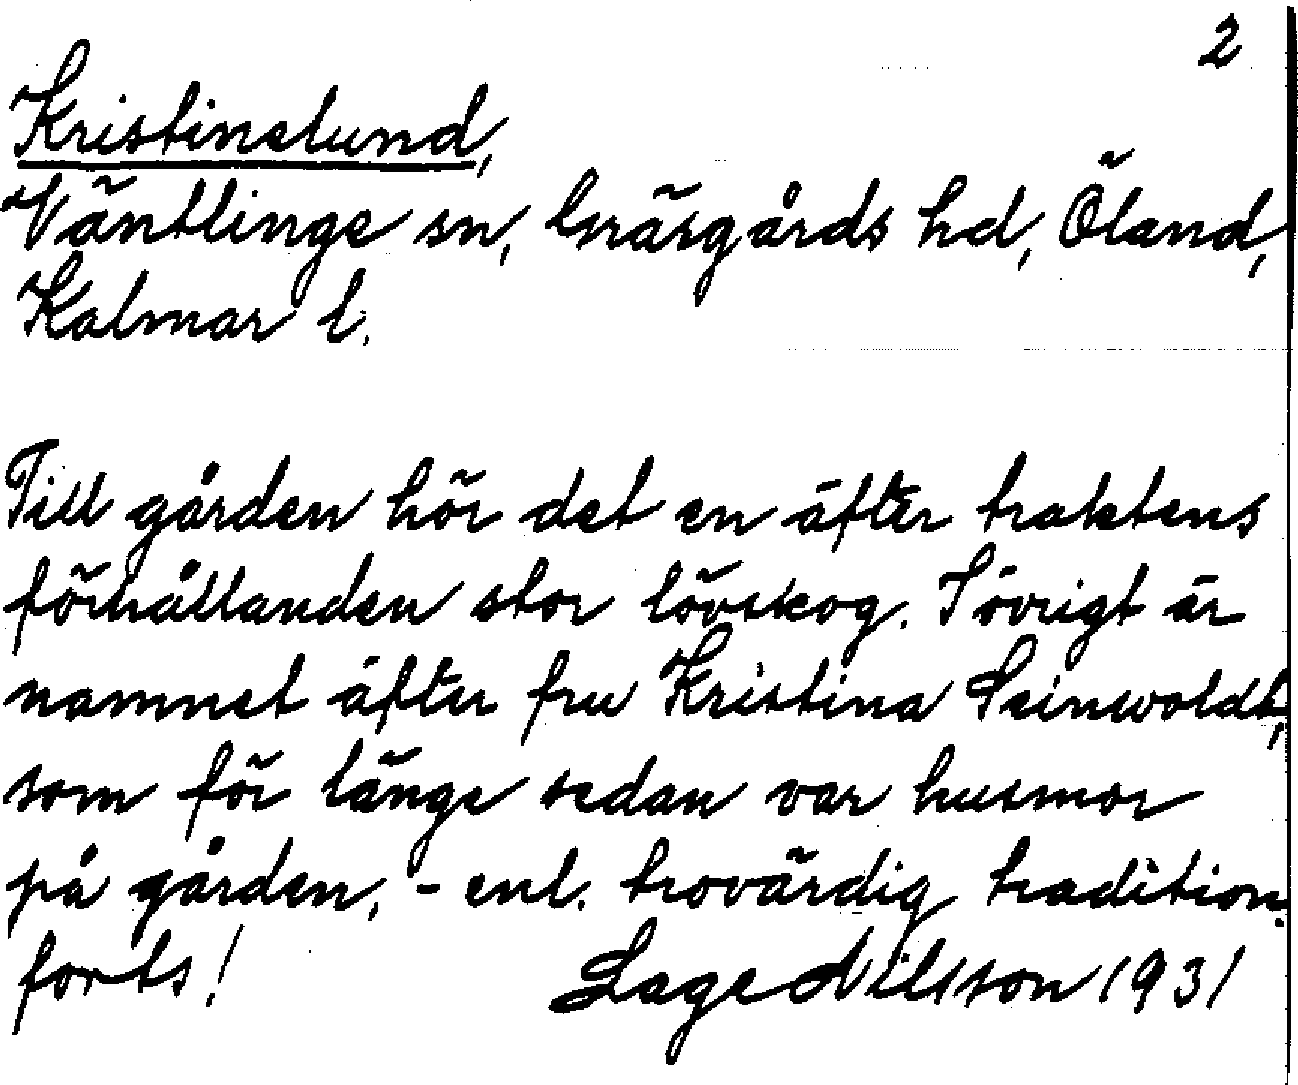 2
Kristinelund,
Väntlinge sn, Gräsgårds hd, Öland,
Kalmar l.
Till gården hör det en äfter traktens
förhållanden stor lövskog. I övrigt är
namnet äfter fru Kristina Leinwoldt,
som för länge sedan var husmor
på gården, - enl. trovärdig tradition.
forts! Lage Nilsson 1931